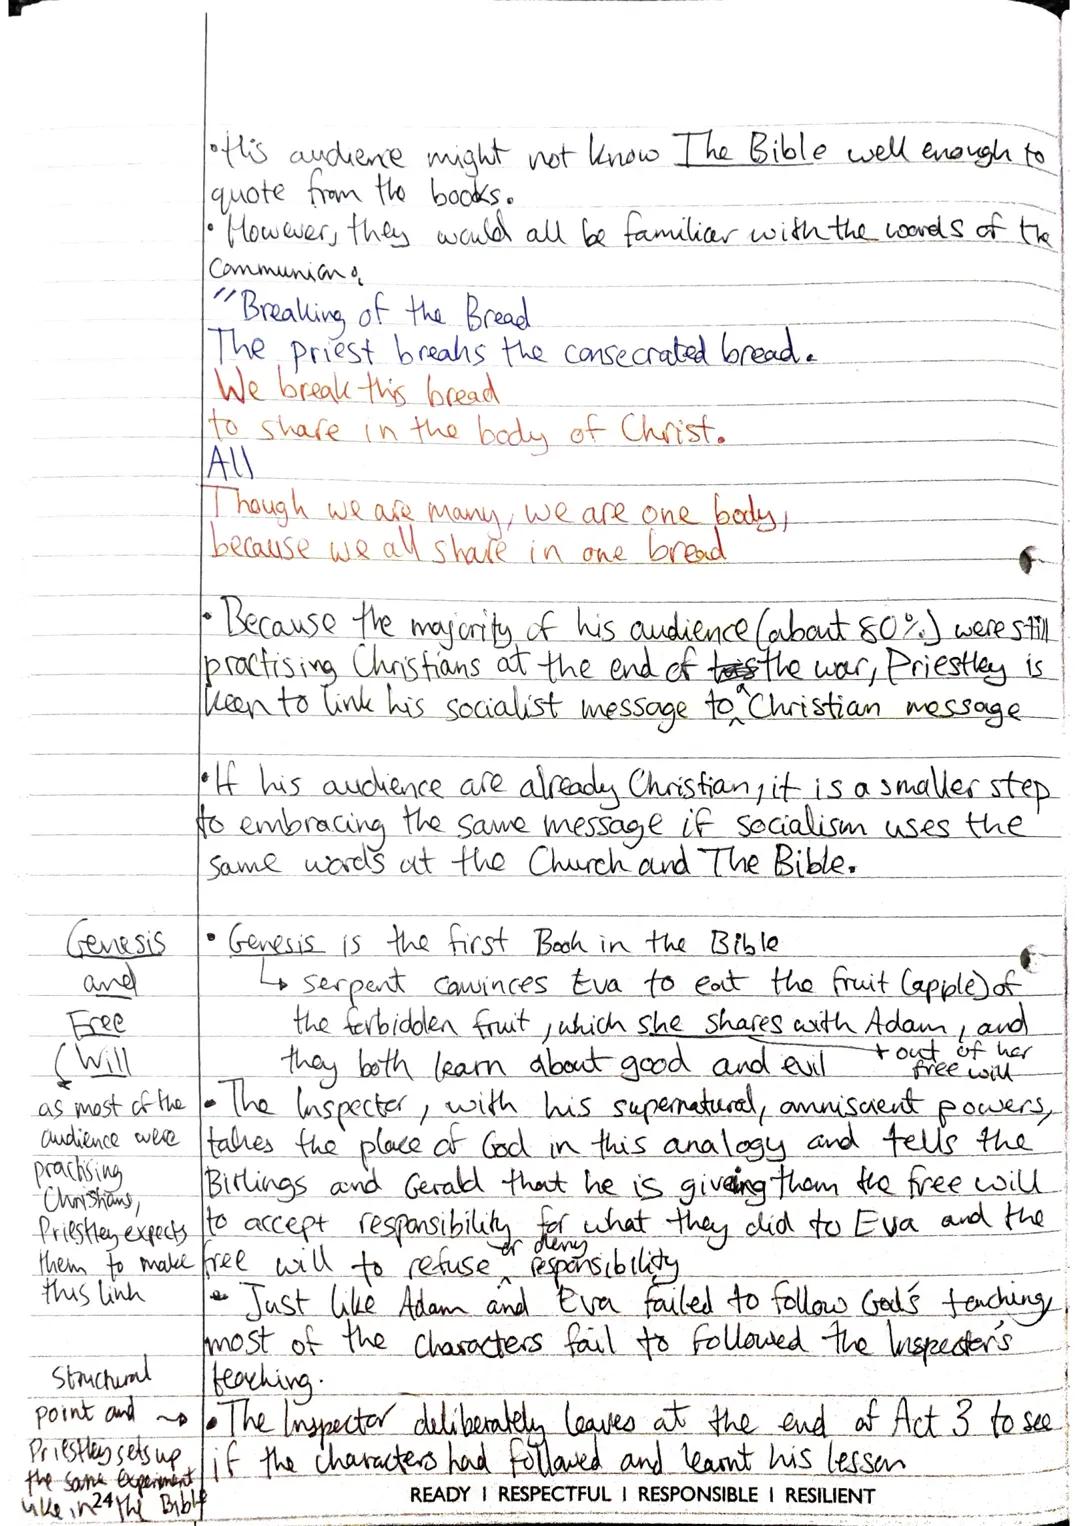 • His audience might not know The Bible well enough to
quote from the books.
• However, they would all be familiar with the words of the
Communion.
"Breaking of the Bread
The priest breaks the consecrated bread.
We break this bread
to share in the body of Christ.
All
Though we are many, we are one body,
because we all share in one bread
• Because the majority of his audience (about 80%) were still
practising Christians at the end of the war, Priestley is
keen to link his socialist message to a Christian message
• If his audience are already Christian, it is a smaller step
to embracing the same message if socialism uses the
same words at the Church and The Bible.
Genesis
and
Free
Will
as most of the
audience were
practising
Christians,
Priestley expects
them to make
this link
• Genesis is the first Book in the Bible
↳ serpent convinces Eva to eat the fruit (apple) of
the forbidden fruit, which she shares with Adam, and
+ out of her
free will
they both learn about good and evil
• The Inspecter, with his supernatural, omniscient powers,
takes the place of God in this analogy and tells the
Birlings and Gerald that he is giving them the free will
to accept responsibility for what they did to Eva and the
free will to refuse or deny responsibility
• Just like Adam and Eva failed to follow God's teaching,
most of the characters fail to followed the Inspector's
teaching.
Structural
point and →
Priestley sets up
the same experiment
like in The Bible
• The Inspector deliberately leaves at the end of Act 3 to see
if the characters had followed and learnt his lesson
24
READY | RESPECTFUL | RESPONSIBLE | RESILIENT